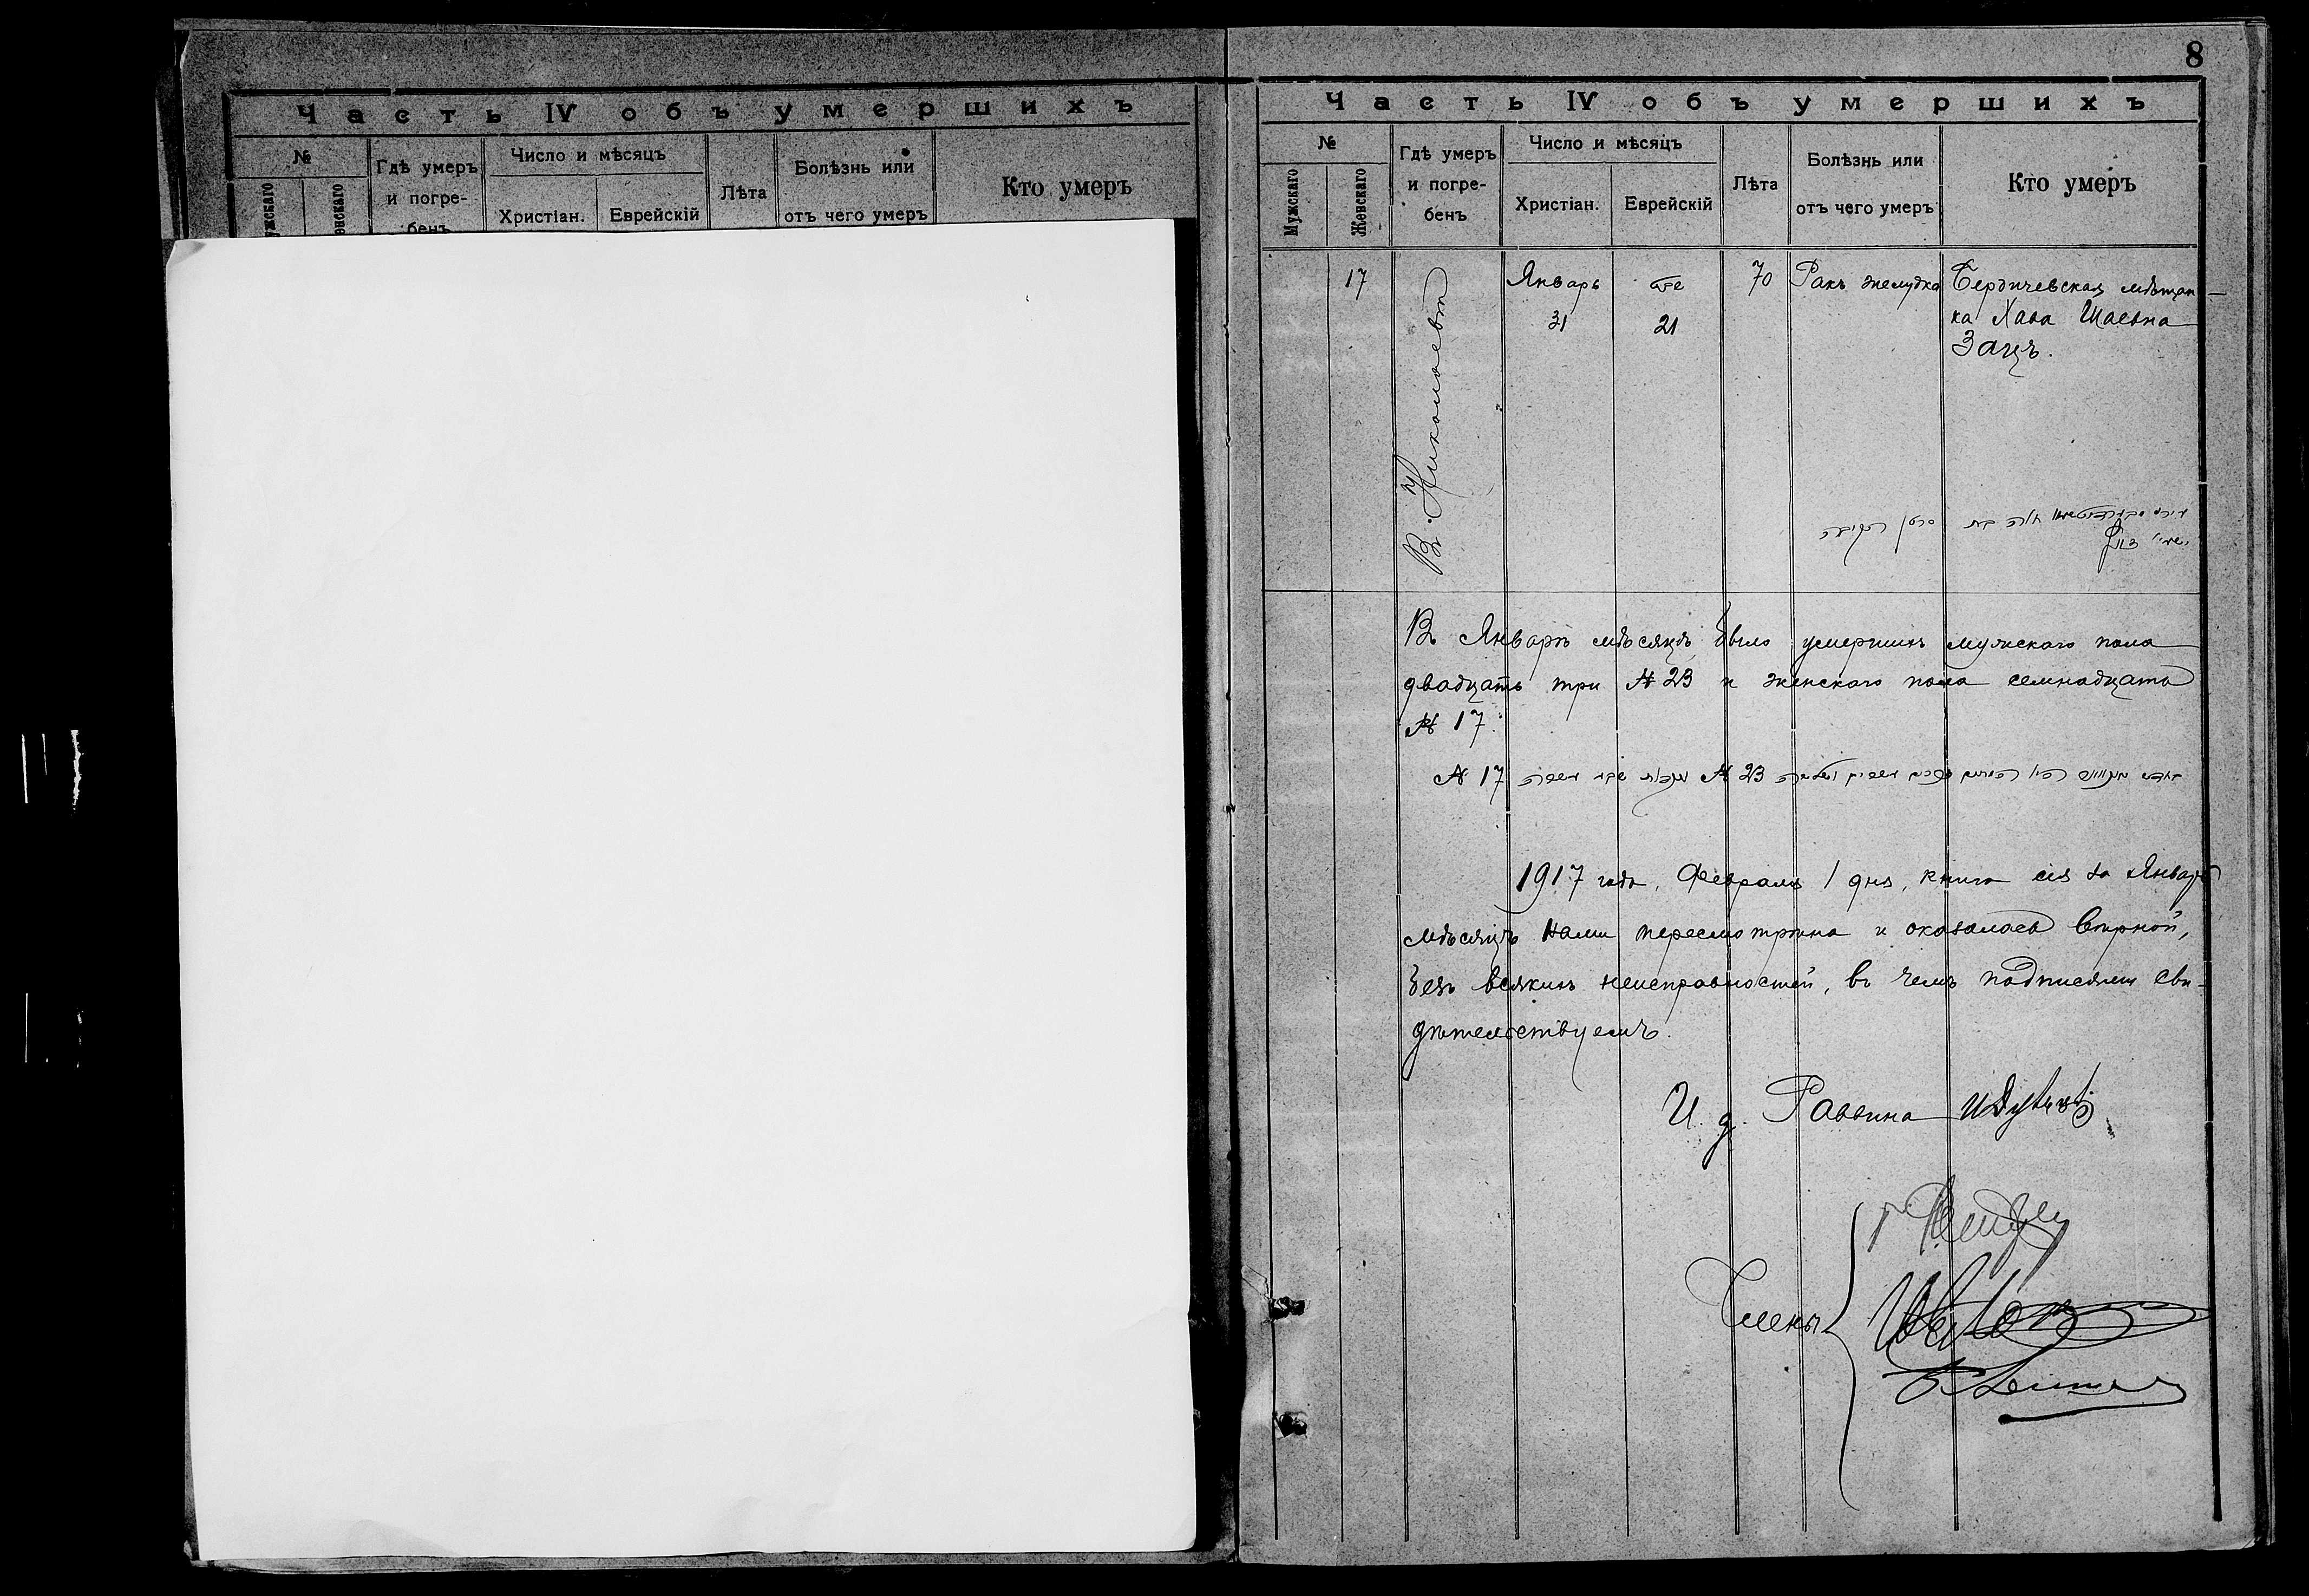 Часть IV объ умершихъ
№
Гдѣ умеръ и погре-
бенъ
Число и мѣсяцъ
Христіан.
Еврейскій
Лѣта
Болѣзнь или
отъ чего умеръ
Кто умеръ
8
Часть IV объ умершихъ
№
Мужскаго
Женскаго
Гдѣ умеръ
и погре-
бенъ
Число и мѣсяцъ
Христіан.
Еврейскій
Лѣта
Болѣзнь или
отъ чего умеръ
Кто умеръ
17
В г. Николаевѣ
Январь
31
שבט
21
70
Ракъ желудка
Бердичевская мѣщан-
ка Хава Шаевна
Зацъ.
В Январѣ мѣсяцѣ было умершихъ мужскаго пола
двадцать три № 23 и женскаго пола семнадцать
№ 17.
№ 23
№ 17
1917 года, Февраля 1 дня, книга сія за Январь
мѣсяцъ нами пересмотрѣна и оказалась вѣрной,
безъ всякихъ неисправностей, въ чемъ подписями сви-
дѣтельствуемъ.
И. д. Раввина
Члены